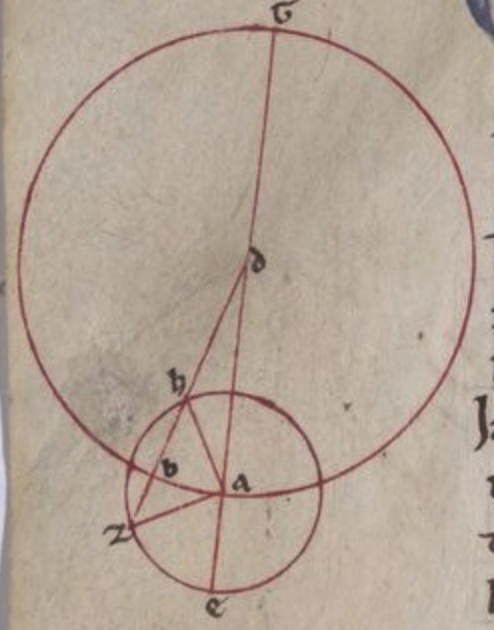 d
h
b
a
z
e